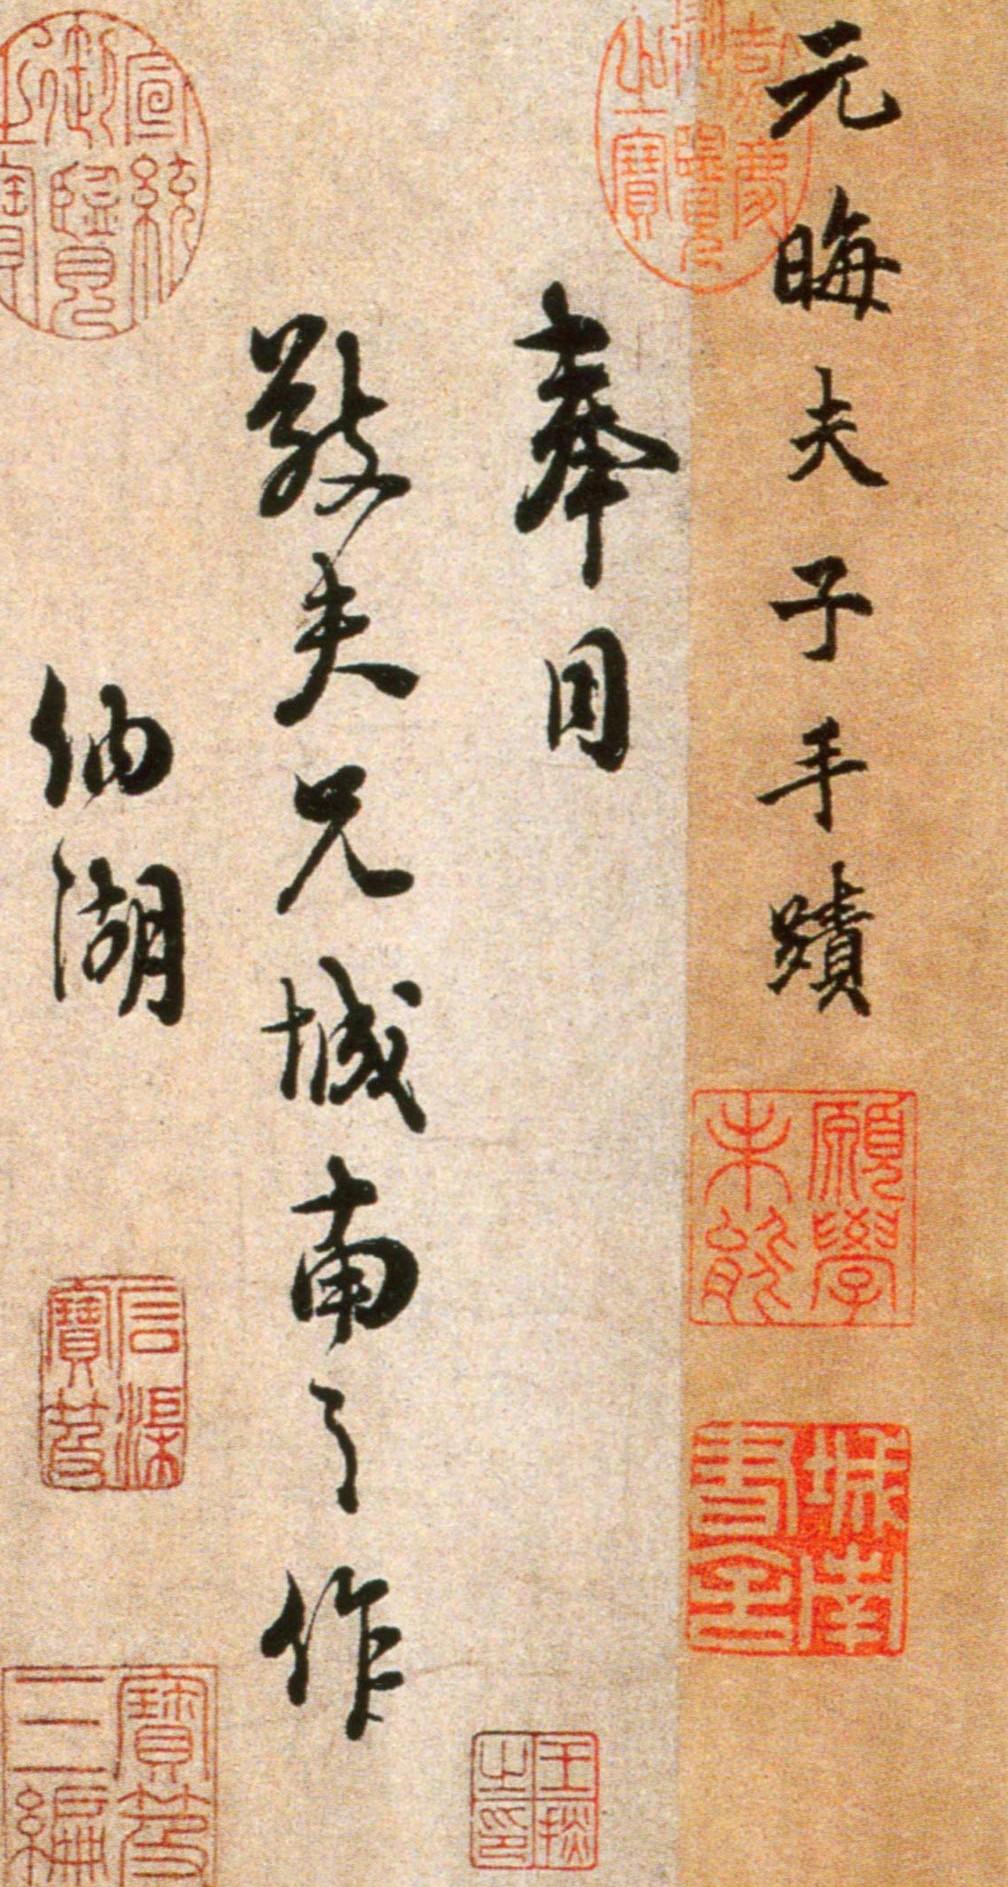 元晦夫子手蹟
願學未能
城南書
嘉慶御覽之寶
奉同
王掞之印
敬夫兄城南之作
納湖
宣統御覽之寶
石渠寶笈
寶笈三編